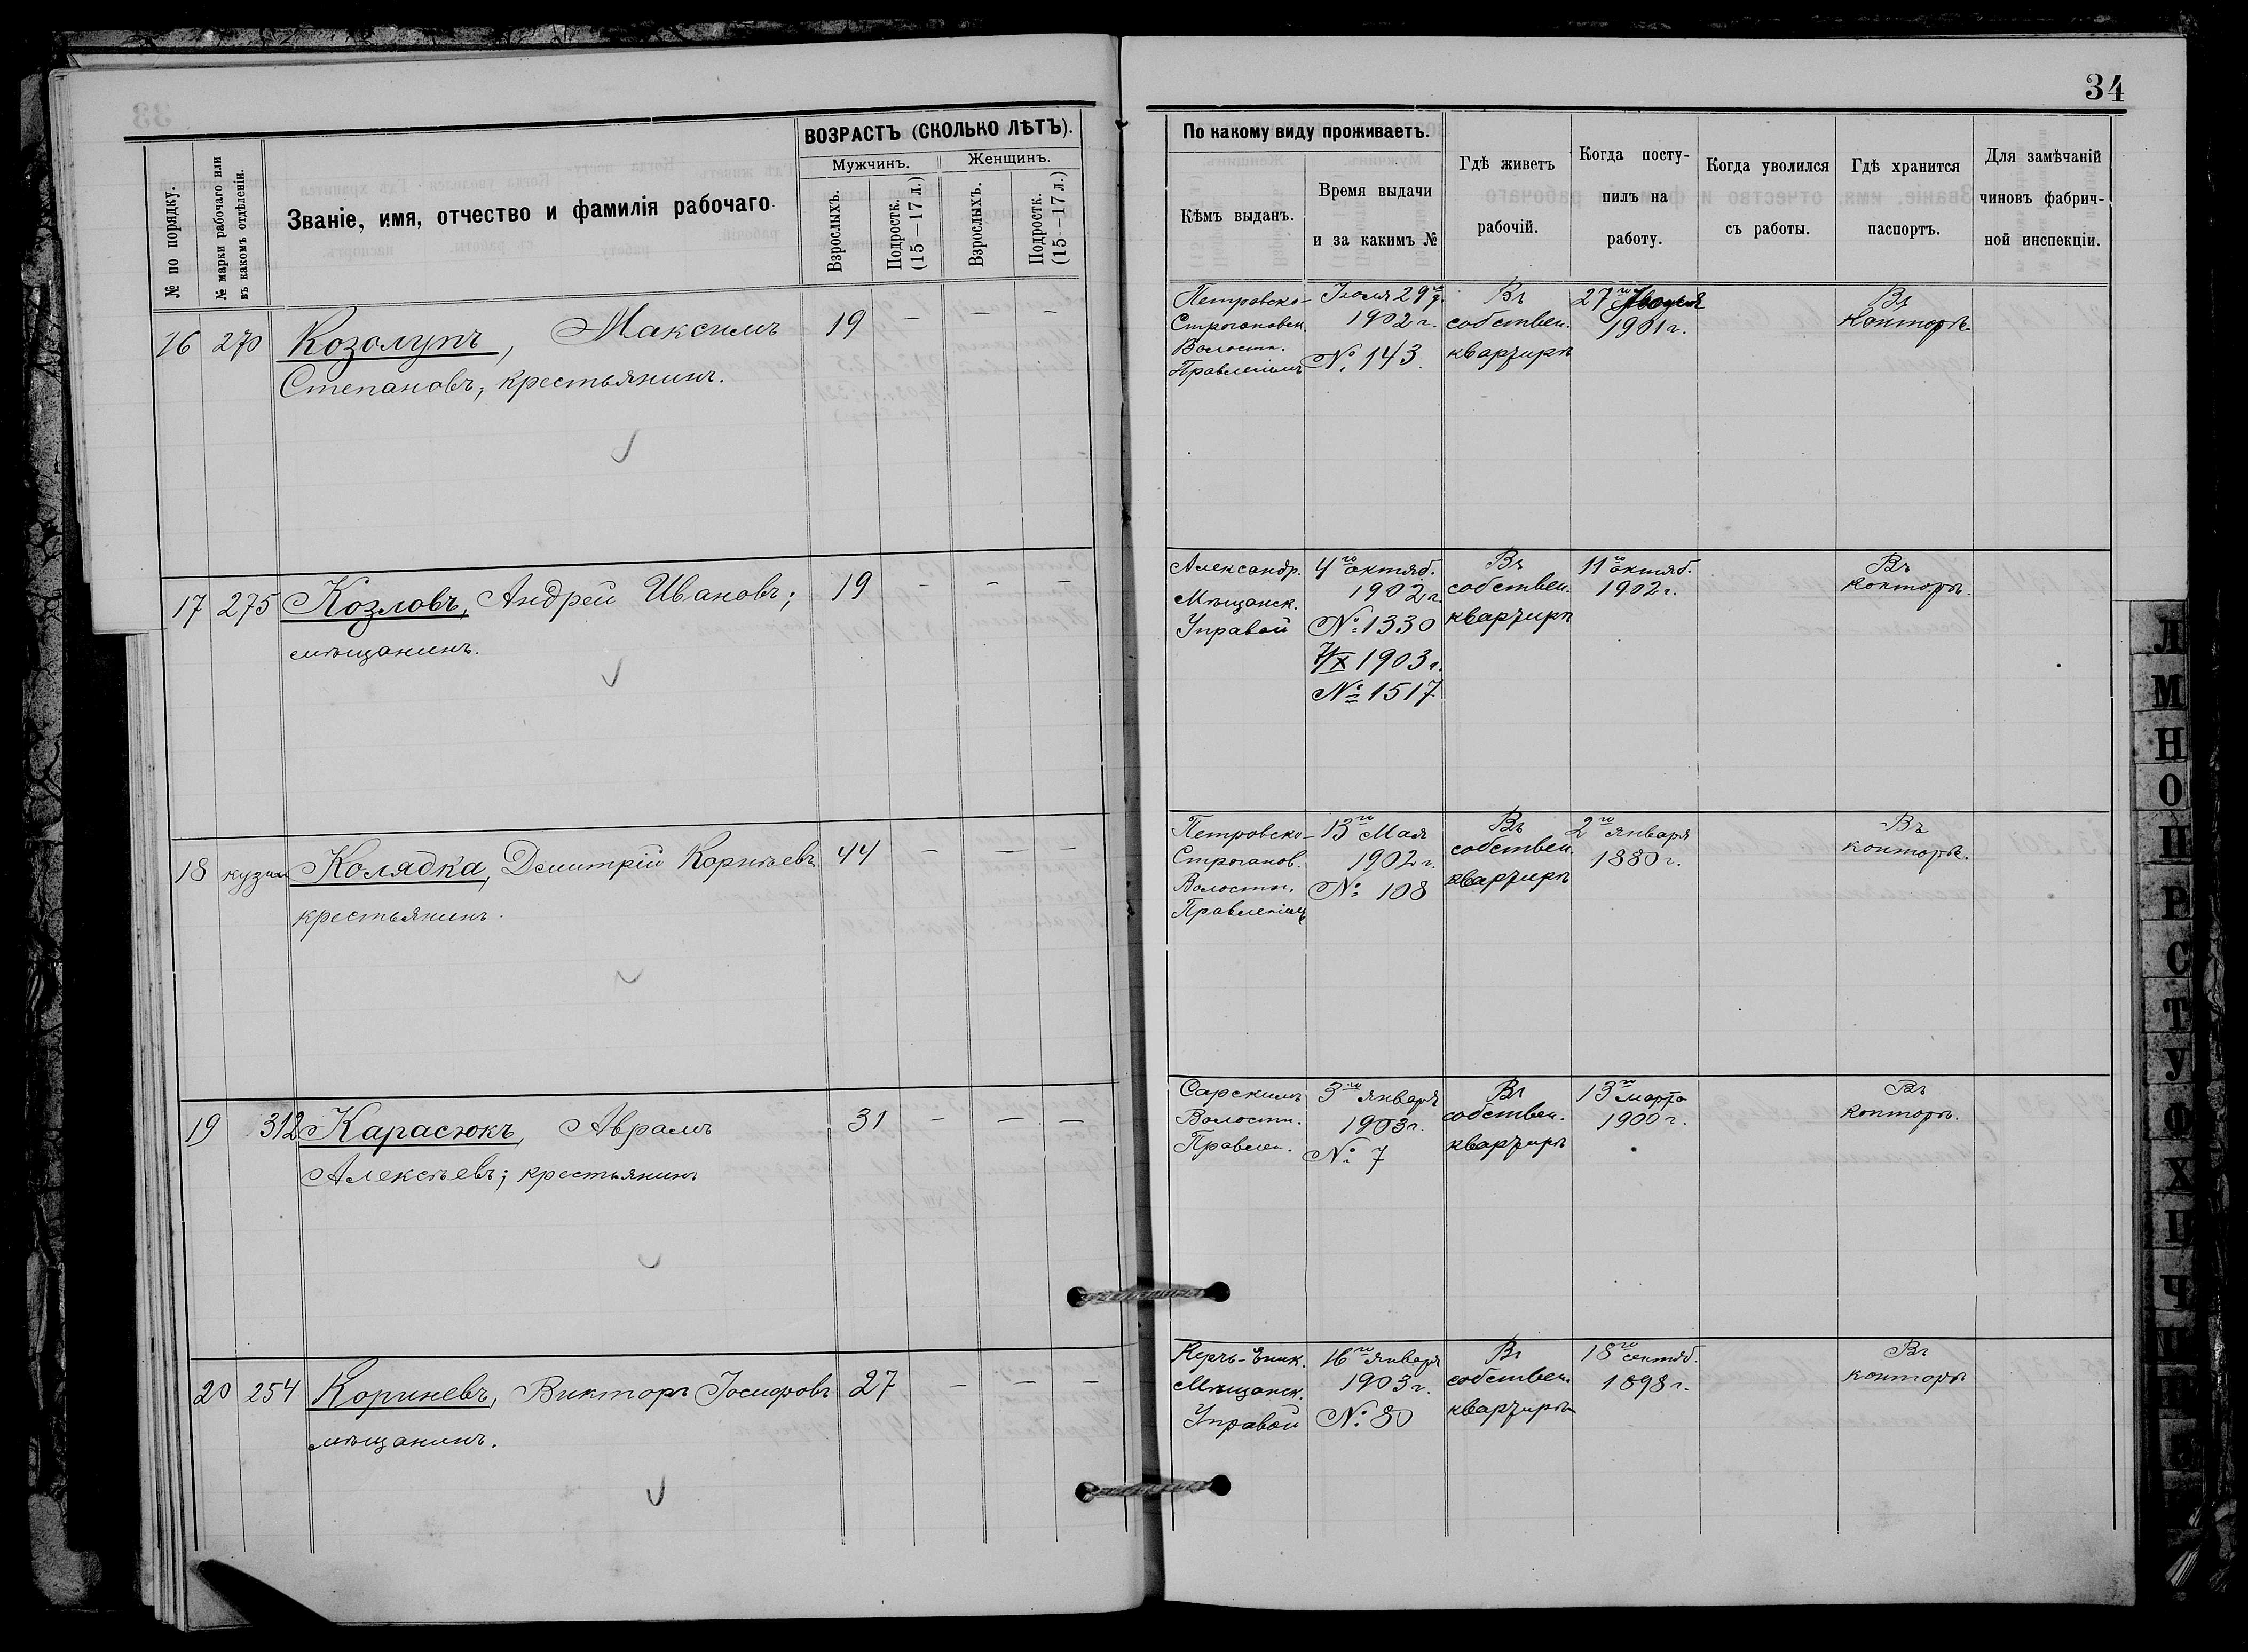 34
ВОЗРАСТЪ (СКОЛЬКО ЛѢТЪ).
Мужчинъ.
Женщинъ.
№ по порядку.
№ марки рабочаго или
въ какомъ отдѣленіи.
Званіе, имя, отчество и фамилія рабочаго.
Взрослыхъ.
Подростк.
(15—17 л.)
Взрослыхъ.
Подростк.
(15—17 л.)
По какому виду проживаетъ.
Кѣмъ выданъ.
Время выдачи
и за какимъ №
Гдѣ живетъ
рабочій.
Когда посту-
пилъ на
работу.
Когда уволился
съ работы.
Гдѣ хранится
паспортъ.
Для замѣчаній
чиновъ фабрич-
ной инспекціи.
16 270 Козолупъ, Максимъ 19 — — —
Степановъ; крестьянинъ.
Петровско-
Строгановск.
Волостн.
Правленіемъ
Іюля 29го
1902 г.
№ 143.
Въ
собствен.
квартирѣ
27го
1901 г.
Въ
конторѣ
17 275 Козловъ, Андрей Ивановъ; 19 — — —
мѣщанинъ.
Александр.
Мѣщанск.
Управой
4го октяб.
1902 г.
№ 1330
7/X 1903 г.
№ 1517
Въ
собствен.
квартирѣ
11го октяб.
1902 г.
Въ
конторѣ.
18 кузня Колядка, Дмитрій Корнѣевъ 44 — — —
крестьянинъ.
Петровско-
Строганов.
Волостн.
Правленіемъ
13го Мая
1902 г.
№ 108
Въ
собствен.
квартирѣ
2го января
1880 г.
Въ
конторѣ.
19 312 Карасюкъ, Аврамъ 31 — — —
Алексѣевъ; крестьянинъ
Сарскимъ
Волостн.
Правлен.
3го января
1903 г.
№ 7
Въ
собствен.
квартирѣ
13го марта
1900 г.
Въ
конторѣ.
20 254 Кориневъ, Викторъ Іосифовъ 27 — — —
мѣщанинъ.
Керчь-Еник.
Мѣщанск.
Управой
16го января
1903 г.
№ 80
Въ
собствен.
квартирѣ
18го сентяб.
1898 г.
Въ
конторѣ
Л
М
Н
О
П
Р
С
Т
У
Ф
Х
Ч